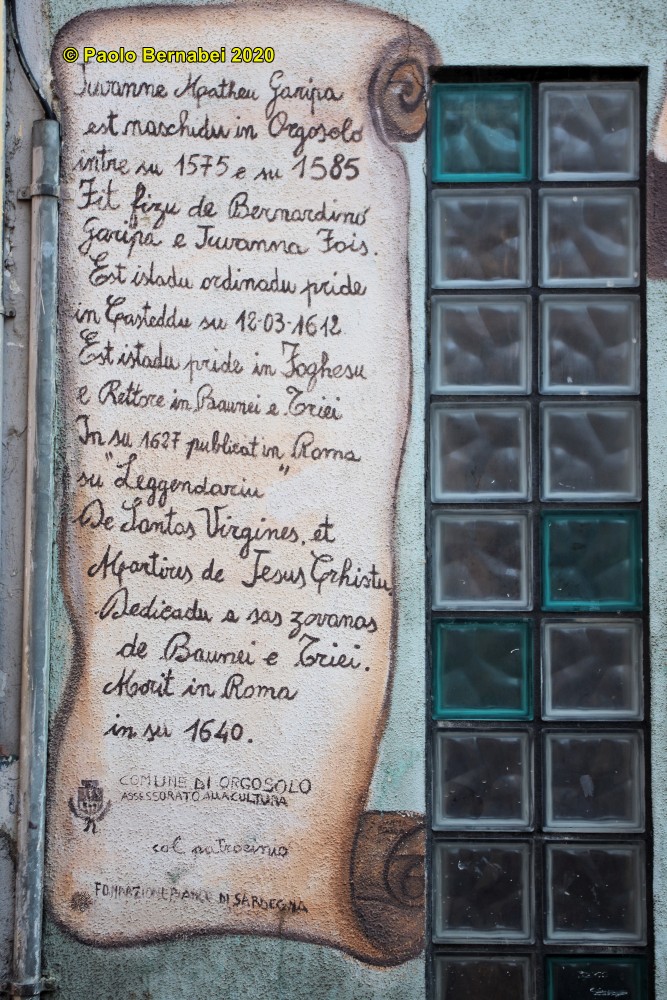 © Paolo Bernabei 2020
Juvanne Matheu Garipa
est naschidu in Orgosolo
intre su 1575 e su 1585
Fit fizu de Bernardinu
Garipa e Juvanna Fois.
Est istadu ordinadu pride
in Casteddu su 12-03-1612
Est istadu pride in Foghesu
e Rettore in Baunei e Triei
In su 1627 publicat in Roma
su "Leggendariu"
De Santas Virgines, et
Martires de Jesus Crhistu.
Dedicadu a sas zovanas
de Baunei e Triei.
Morit in Roma
in su 1640.
COMUNE DI ORGOSOLO
ASSESSORATO ALLA CULTURA
col patrocinio
FONDAZIONE BANCO DI SARDEGNA